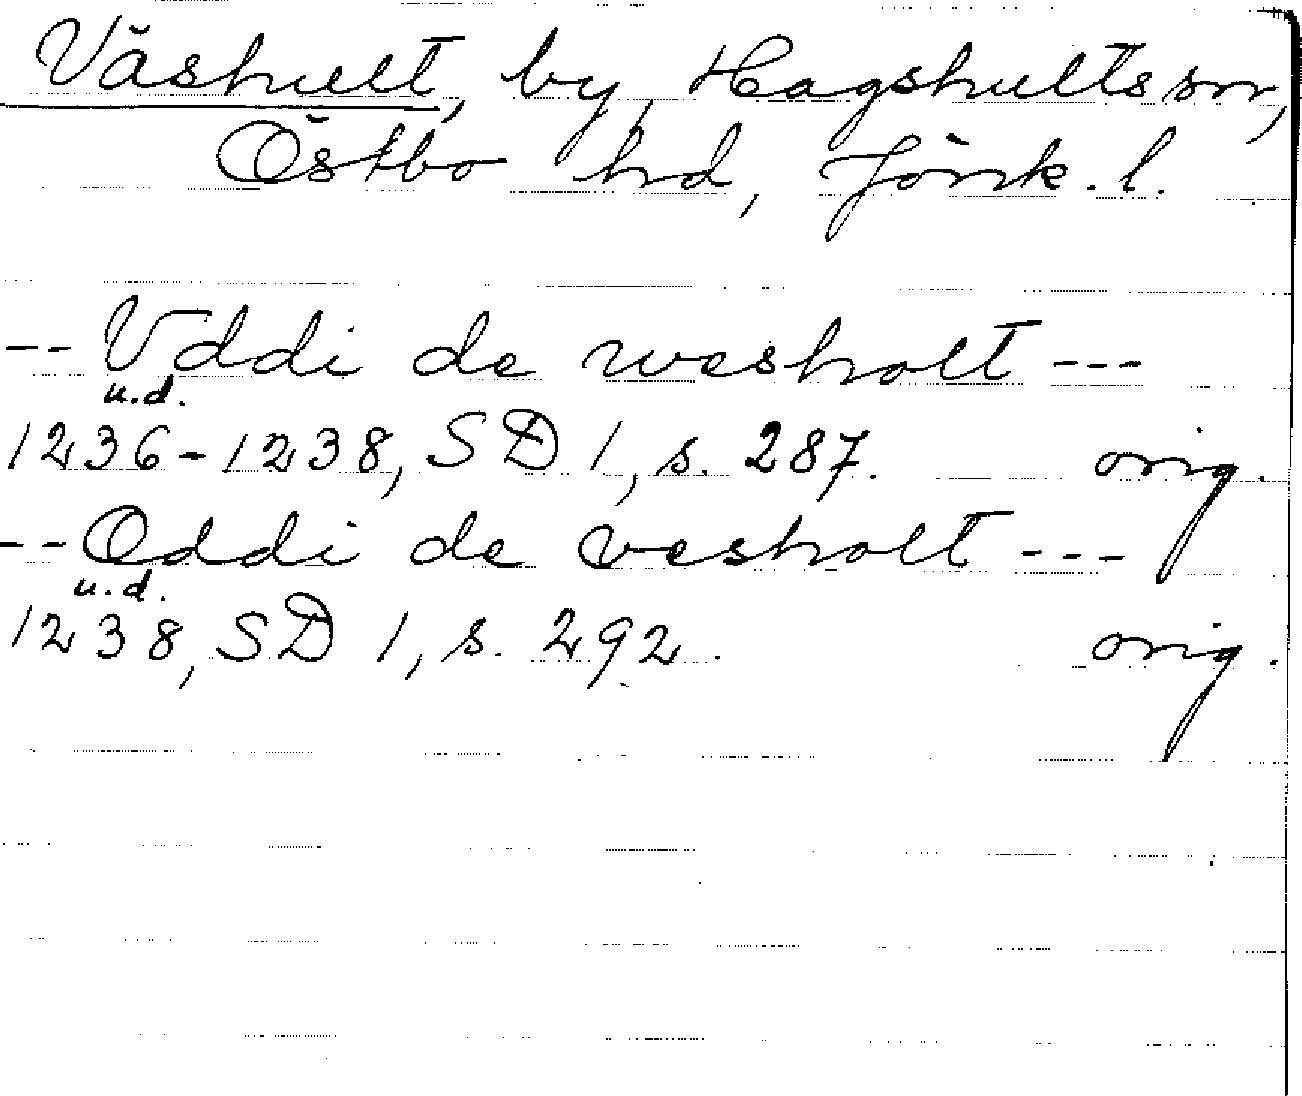 Väshult, by, Hagshults sn,
Östbo hd, Jönk. l.
-- Vddi de wesholt ---
u.d.
1236-1238, SD 1, s. 287. orig.
-- Oddi de vesholt ---
u.d.
1238, SD 1, s. 292. orig.